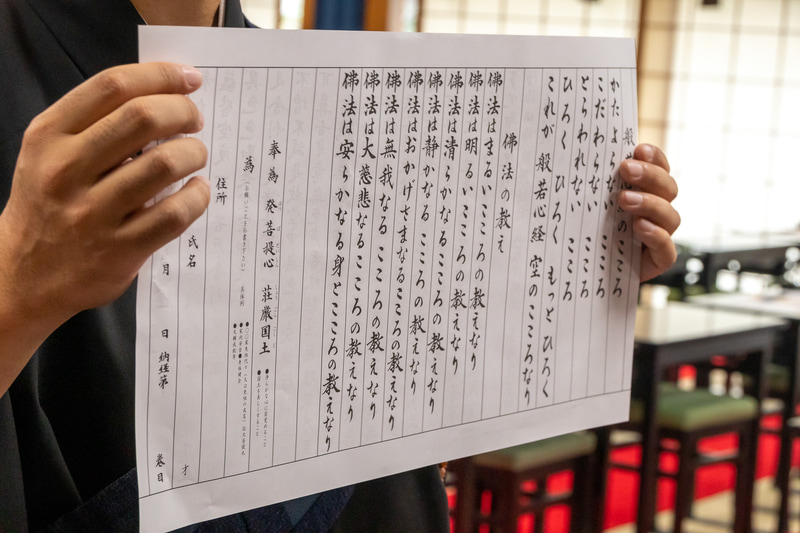 般 のこころ
かたよらない こころ
こだわらない こころ
とらわれない こころ
ひろく ひろく もっと ひろく
これが 般若心経 空のこころなり
佛法の教え
佛法はまるいこころの教えなり
佛法は明るいこころの教えなり
佛法は清らかなるこころの教えなり
佛法は静かなる こころの教えなり
佛法はおかげさまなるこころの教えなり
佛法は無我なる こころの教えなり
佛法は大慈悲なるこころの教えなり
佛法は安らかなる身とこころの教えなり
奉為 発菩提心 荘厳国土
為 (お願いごとをお書き下さい) 具体例
住所
氏名 才
月 日 納経第 巻目